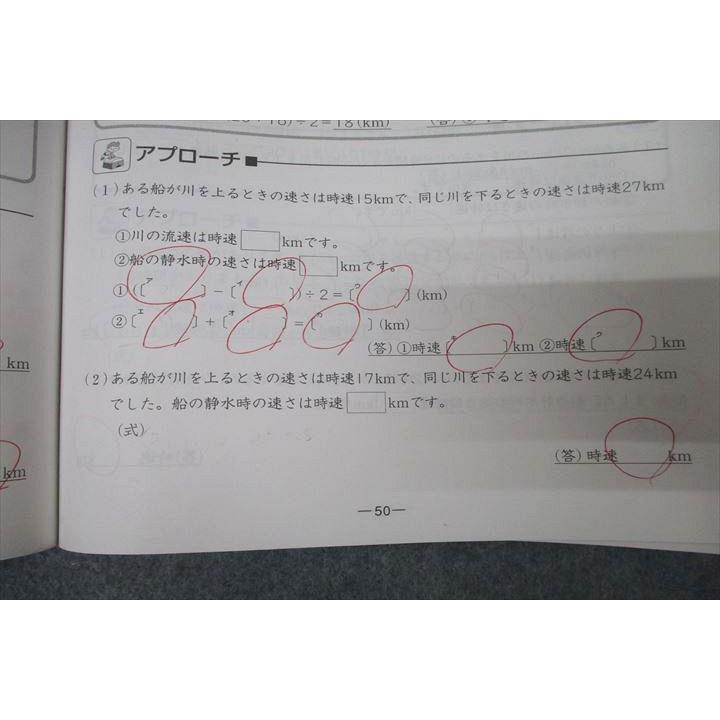 ÷2=18(km)
アプローチ
(1)ある船が川を上るときの速さは時速15kmで、同じ川を下るときの速さは時速27km
でした。
①川の流速は時速□kmです。
②船の静水時の速さは時速□kmです。
①([ア ]−[イ ])÷2=[ウ ](km)
②[エ ]+[オ ]=[カ ](km)
(答)①時速[キ ]km ②時速[ク ]km
(2)ある船が川を上るときの速さは時速17kmで、同じ川を下るときの速さは時速24km
でした。船の静水時の速さは時速□kmです。
(式)
(答)時速 km
km
km
—50—